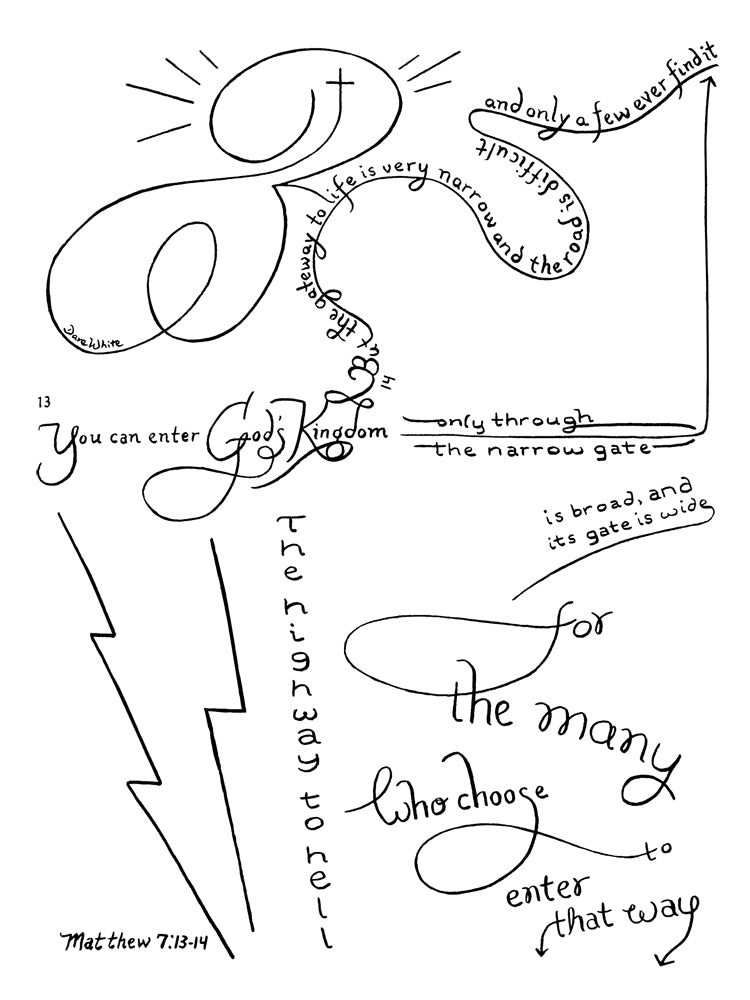 13
You can enter God's Kingdom
only through
the narrow gate
The highway to hell
is broad, and
its gate is wide
for
the many
who choose
to
enter
that way
14
But the gateway to life is very narrow and the road is difficult
and only a few ever find it
Matthew 7:13-14
White